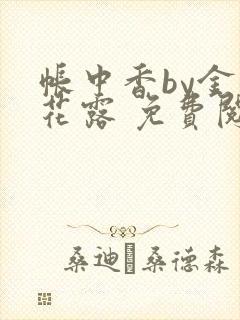 帳中香by金
花露 免費閱
桑迪·桑德森